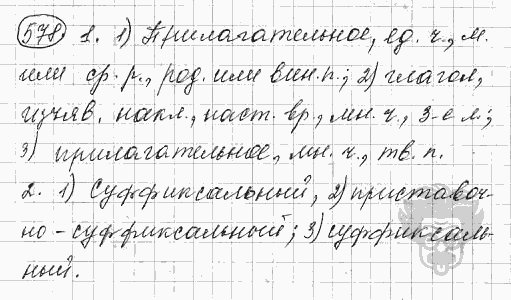 578. 1. 1) Прилагательное, ед. ч., м.
или ср. р., род. или вин. п.; 2) глагол,
изъяв. накл., наст. вр., мн. ч., 3-е л.;
3) прилагательное, мн. ч., тв. п.
2. 1) Суффиксальный, 2) приставоч-
но-суффиксальный; 3) суффиксаль-
ный.